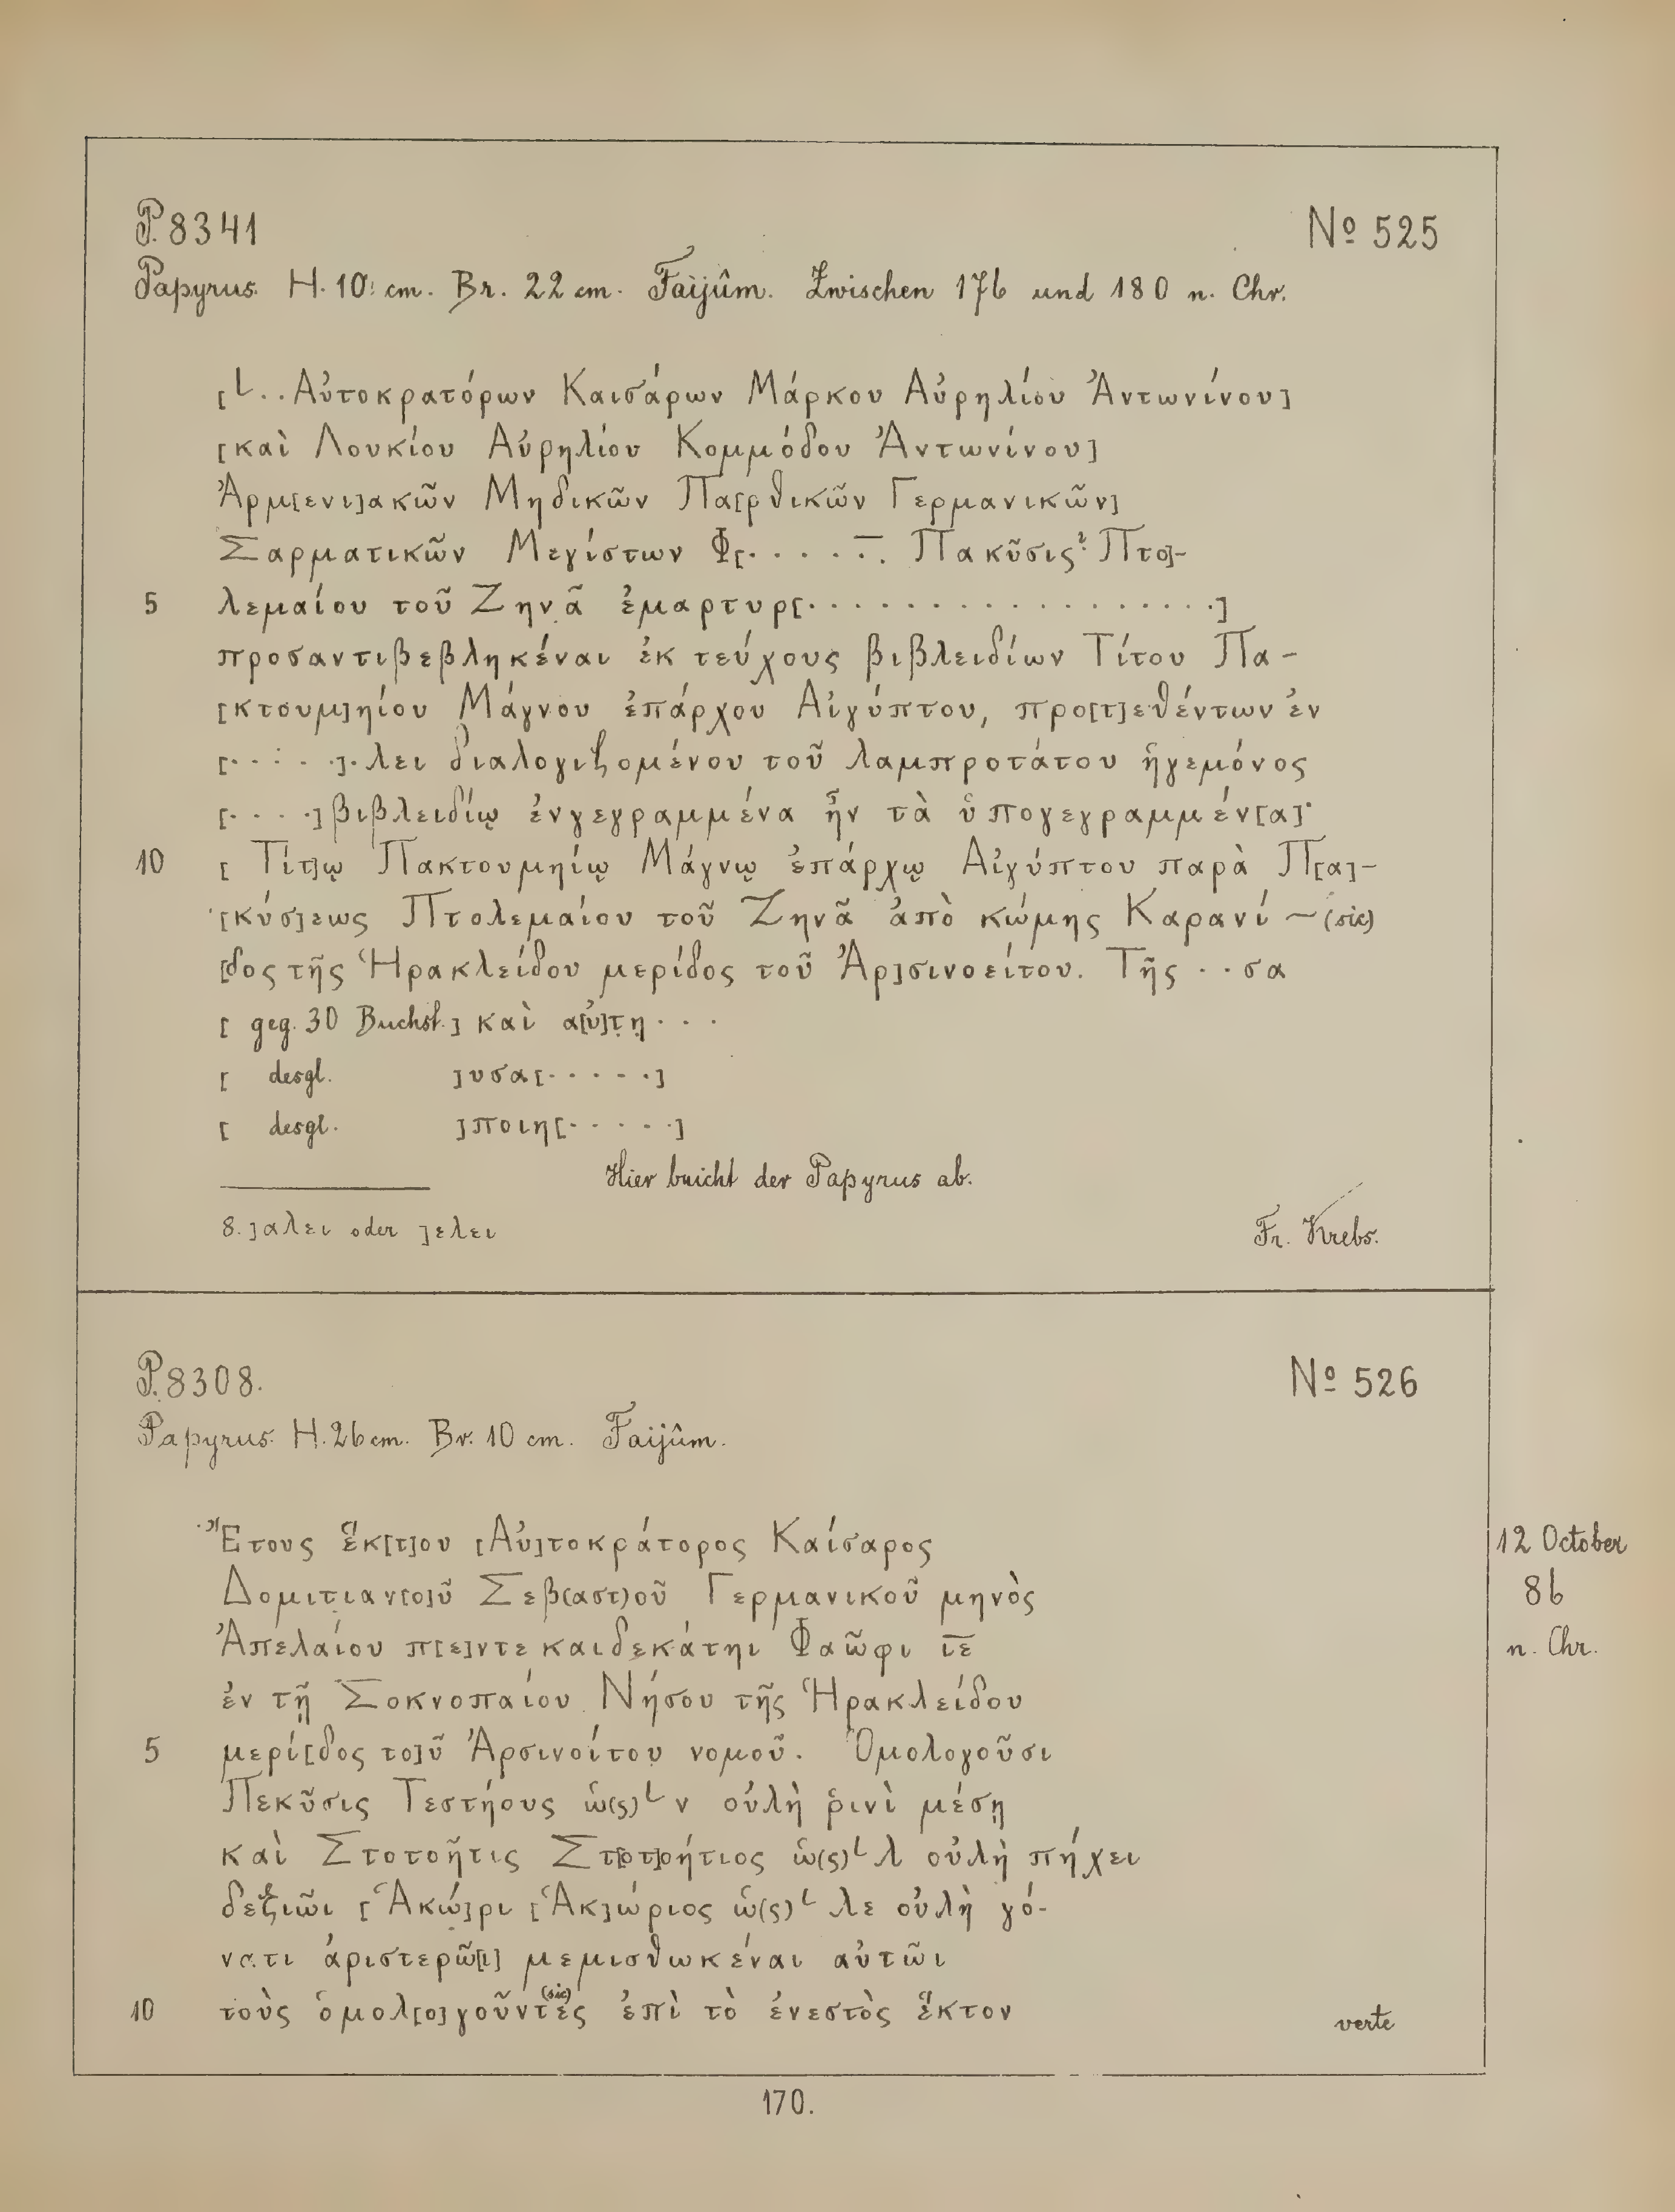 P. 8341 Nº 525
Papyrus. H. 10 cm. Br. 22 cm. Faijûm. Zwischen 176 und 180 n. Chr.
[L . . Αὐτοκρατόρων Καισάρων Μάρκου Αὐρηλίου Ἀντωνίνου]
[καὶ Λουκίου Αὐρηλίου Κομμόδου Ἀντωνίνου]
Ἀρμ[ενι]ακῶν Μηδικῶν Πα[ρθικῶν Γερμανικῶν]
Σαρματικῶν Μεγίστων Φ[. . . . . . . Πακῦσις? Πτο]-
5 λεμαίου τοῦ Ζηνᾶ ἐμαρτυρ[. . . . . . . . . . . . . . . . . .]
προσαντιβεβληκέναι ἐκ τεύχους βιβλειδίων Τίτου Πα-
[κτουμ]ηίου Μάγνου ἐπάρχου Αἰγύπτου, προ[τ]εθέντων ἐν
[. . . . .].λει διαλογιζομένου τοῦ λαμπροτάτου ἡγεμόνος
[. . . .] βιβλειδίῳ ἐνγεγραμμένα ἦν τὰ ὑπογεγραμμέν[α]·
10 [Τίτ]ῳ Πακτουμηίῳ Μάγνῳ ἐπάρχῳ Αἰγύπτου παρὰ Π[α]-
[κύσ]εως Πτολεμαίου τοῦ Ζηνᾶ ἀπὸ κώμης Καρανί – (sic)
[δος τῆς Ἡρακλείδου μερίδος τοῦ Ἀρ]σινοείτου. Τῆς . . σα
[ geg. 30 Buchst.] καὶ α[ὐ]τῃ . . .
[ desgl. ]υσα[. . . . .]
[ desgl. ]ποιη[. . . . .]
Hier bricht der Papyrus ab.
8. ]αλει oder ]ελει Fr. Krebs.
P. 8308. Nº 526
Papyrus. H. 26 cm. Br. 10 cm. Faijûm.
Ἔτους ἕκ[τ]ου [Αὐ]τοκράτορος Καίσαρος 12 October
Δομιτιαν[ο]ῦ Σεβ(αστ)οῦ Γερμανικοῦ μηνὸς 86
Ἀπελαίου π[ε]ντεκαιδεκάτηι Φαῶφι ιε n. Chr.
ἐν τῇ Σοκνοπαίου Νήσου τῆς Ἡρακλείδου
5 μερί[δος το]ῦ Ἀρσινοίτου νομοῦ. Ὁμολογοῦσι
Πεκῦσις Τεστήους ὡ(ς) L ν οὐλὴ ῥινὶ μέσῃ
καὶ Στοτοῆτις Στ[οτ]οήτιος ὡ(ς) L λ οὐλὴ πήχει
δεξιῶι [Ἁκώ]ρι [Ἁκ]ώριος ὡ(ς) L λε οὐλὴ γό-
νατι ἀριστερῶ[ι] μεμισθωκέναι αὐτῶι
10 τοὺς ὁμολ[ο]γοῦντες (sic) ἐπὶ τὸ ἐνεστὸς ἕκτον verte
170.